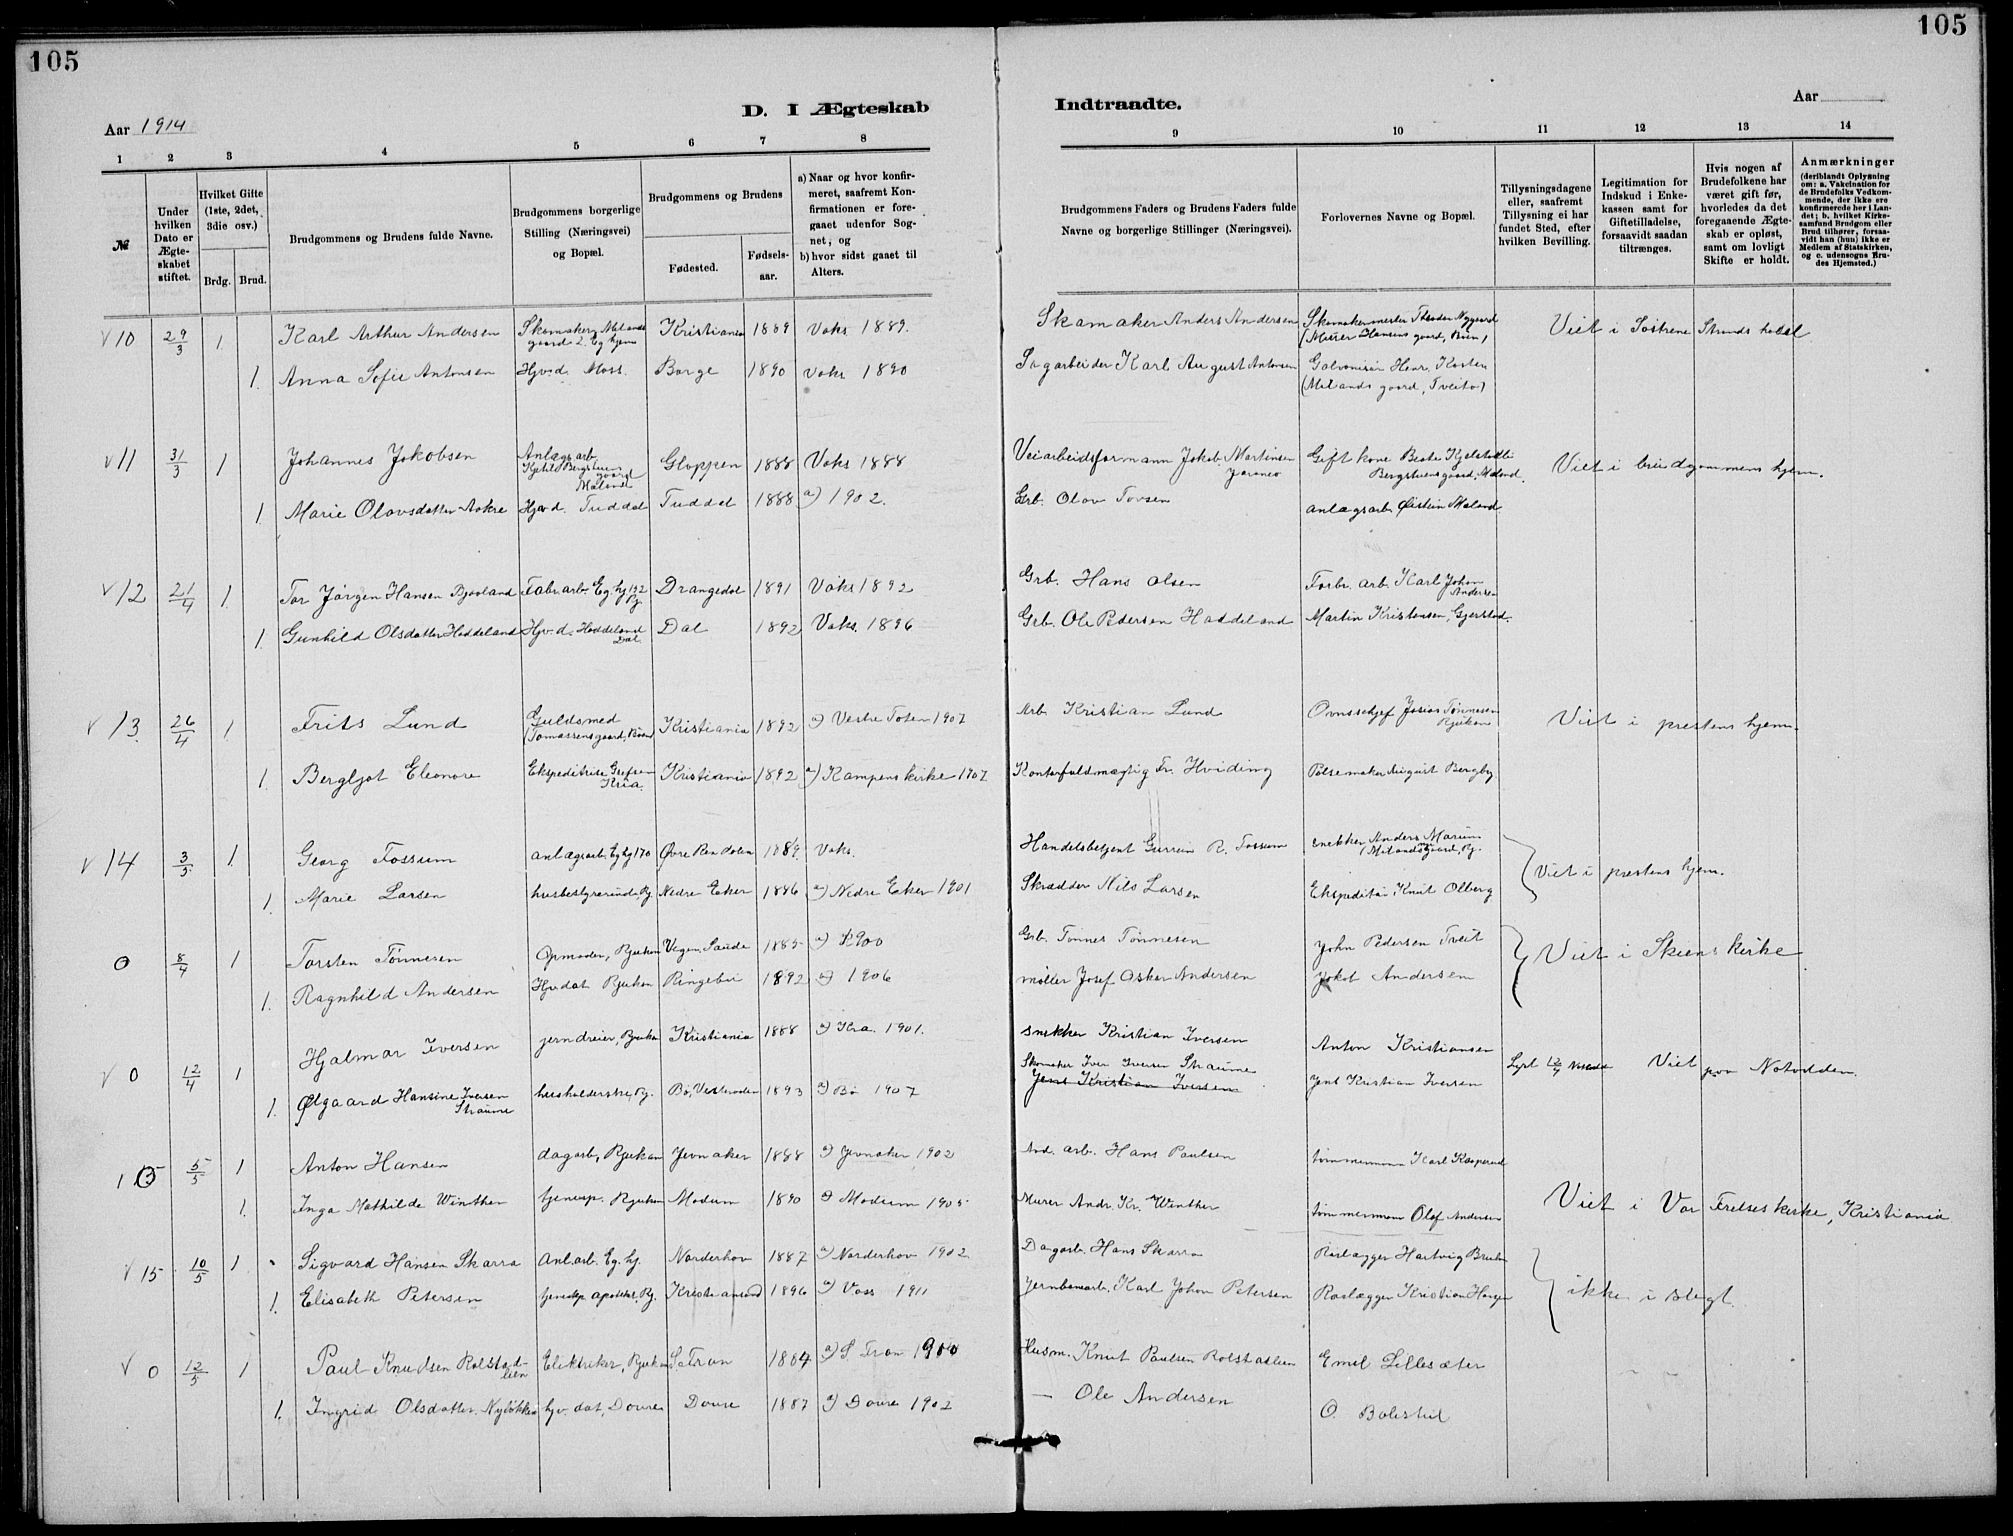 105
105
D. I Ægteskab
Indtraadte.
Aar 1914
Aar
1 2 3 4 5 6 7 8
9 10 11 12 13 14
№
Under hvilken Dato er Ægteskabet stiftet.
Hvilket Gifte (1ste, 2det, 3die osv.)
Brdg. Brud.
Brudgommens og Brudens fulde Navne.
Brudgommens borgerlige Stilling (Næringsvei) og Bopæl.
Brudgommens og Brudens
Fødested.
Fødselsaar.
a) Naar og hvor konfirmeret, saafremt Konfirmationen er foregaaet udenfor Sognet, og
b) hvor sidst gaaet til Alters.
Brudgommens Faders og Brudens Faders fulde Navne og borgerlige Stillinger (Næringsvei).
Forlovernes Navne og Bopæl.
Tillysningsdagene eller, saafremt Tillysning ei har fundet Sted, efter hvilken Bevilling.
Legitimation for Indskud i Enkekassen samt for Giftetilladelse, forsaavidt saadan tiltrænges.
Hvis nogen af Brudefolkene har været gift før, hvorledes da det foregaaende Ægteskab er opløst, samt om lovligt Skifte er holdt.
Anmærkninger (deriblandt Oplysning om: a. Vakcination for de Brudefolks Vedkommende, der ikke ere konfirmerede her i Landet; b. hvilket Kirkesamfund Brudgom eller Brud tilhører, forsaavidt han (hun) ikke er Medlem af Statskirken, og c. udensogns Brudes Hjemsted.)
√ 10 29/3 1 Karl Arthur Andersen Skomaker, Milandsgaard 2. Eg hjem Kristiania 1889 Vaks 1889. Skomaker Anders Andersen Skomakermester Theodor Nygaard (Murer Hansens gaard, Bøen) Viet i Søstrene Strands hotel
1. Anna Sofie Antonsen Hjv.d. Moss. Borge 1890 vaks 1890 Sagarbeider Karl August Antonsen Galvonisør Henr. Kosten (Milands gaard, Tveito)
√ 11 31/3 1 Johannes Jakobsen Anlægsarb. Kjetil Bergstuens gaard Mæland Gloppen 1888 Vaks 1888 Veiarbeidsformann Jakob Martinsen Gift kone Beate Kjelstadli Bergstuens gaard, Mæland. Viet i brudgommens hjem.
1. Marie Olavsdatter Aakre Hjv.d. Tuddal Tuddal 1888 a) 1902. Grb. Olav Tovsen anlægsarb. Øistein Mæland
√ 12 21/4 1. Tor Jørgen Hansen Bjaaland Fabr.arb. Eg.hj 192 Rj. Drangedal 1891 Vaks 1892 Grb. Hans Olsen Fabr. arb. Karl Johan Andersen
1. Gunhild Olsdatter Haddeland Hjv.d. Haddeland Dal. Dal 1892 Vaks. 1896 Grb. Ole Pedersen Haddeland Martin Kristensen, Gjerstad.
√ 13 26/4 1. Frits Lund Guldsmed (Tomassensgaard, Bøen) Kristiania 1892 a) Vestre Toten 1907 Arb. Kristian Lund Ovnsschjef Josias Tønnesen Rjukan Viet i prestens hjem.
1. Bergljot Eleonore Ekspeditrise Grefsen Kria. Kristiania 1892 a) Kampens kirke 1907 Kontorfuldmægtig Fr. Hviding Pølsemaker August Bergby.
√ 14 3/5 1. Georg Fossum anlægsarb. Eghj 170 Øvre Rendalen 1889. Vaks. Handelsbetjent R. Fossum snekker Anders (Milandsgaard, Rj. Viet i prestens hjem.
1. Marie Larsen husbestyrerinde, Rj. Nedre Eker 1886 a) Nedre Eker 1901 Skrædder Nils Larsen Ekspeditør Knut Olberg
0 8/4 1 Torsten Tønnesen Opmoder, Rjukan Saude 1885 a) 1900 Grb. Tønnes Tønnesen John Pedersen Tveit Viet i Skiens kirke
1. Ragnhild Andersen Hjv. dat Rjukan Ringebu 1892 a) 1906 møller Josef Oskar Andersen Jakob Andersen
√ 0 12/4 1 Hjalmar Iversen jerndreier, Rjukan Kristiania 1888 a) Kra. 1901. snekker Kristian Iversen Anton Kristiansen Lyst 12/4 Viet paa Notodden.
1. Ølgaard Hansine Iversen Straume husholderske, Rj. Bø, 1893 a) Bø 1907 Skomaker Iver Iversen Straume Jens Kristian Iversen Jens Kristian Iversen
15 5/5 1 Anton Hansen dagarb, Rjukan Jevnaker 1888 a) Jevnaker 1902 And. arb. Hans Paulsen tømmermann Karl Kasperud
1. Inga Mathilde Winther tjenesp. Rjukan Modum 1890 a) Modum 1905 Murer Andr. Kr. Winther tømmermann Olaf Andersen Viet i Vor Frelses kirke, Kristiania
√ 15 10/5 1 Sigvard Hansen Skarra Anl.arb. Eg. hj. Norderhov 1887 a) Norderhov 1902 Dagarb. Hans Skarra Rørlægger Hartvig ikke i slegt.
1. Elisabeth Petersen tjenesp. apotek., Rj. Kristiansand 1896 a) Voss 1911 Jernbanearb. Karl Johan Petersen Rørlægger Kristian Hansen
√ 0 12/5 1 Paul Knudsen Rolstadlien Elektriker, Rjukan S. Fron 1884 a) S. Fron 1900 Husm. Knut Paulsen Rolstadlien Emil Lillesæter
1. Ingrid Olsdatter Nyløkken hjv. dat, Dovre Dovre 1887 a) Dovre 1902 — Ole Andersen O. Bolestul